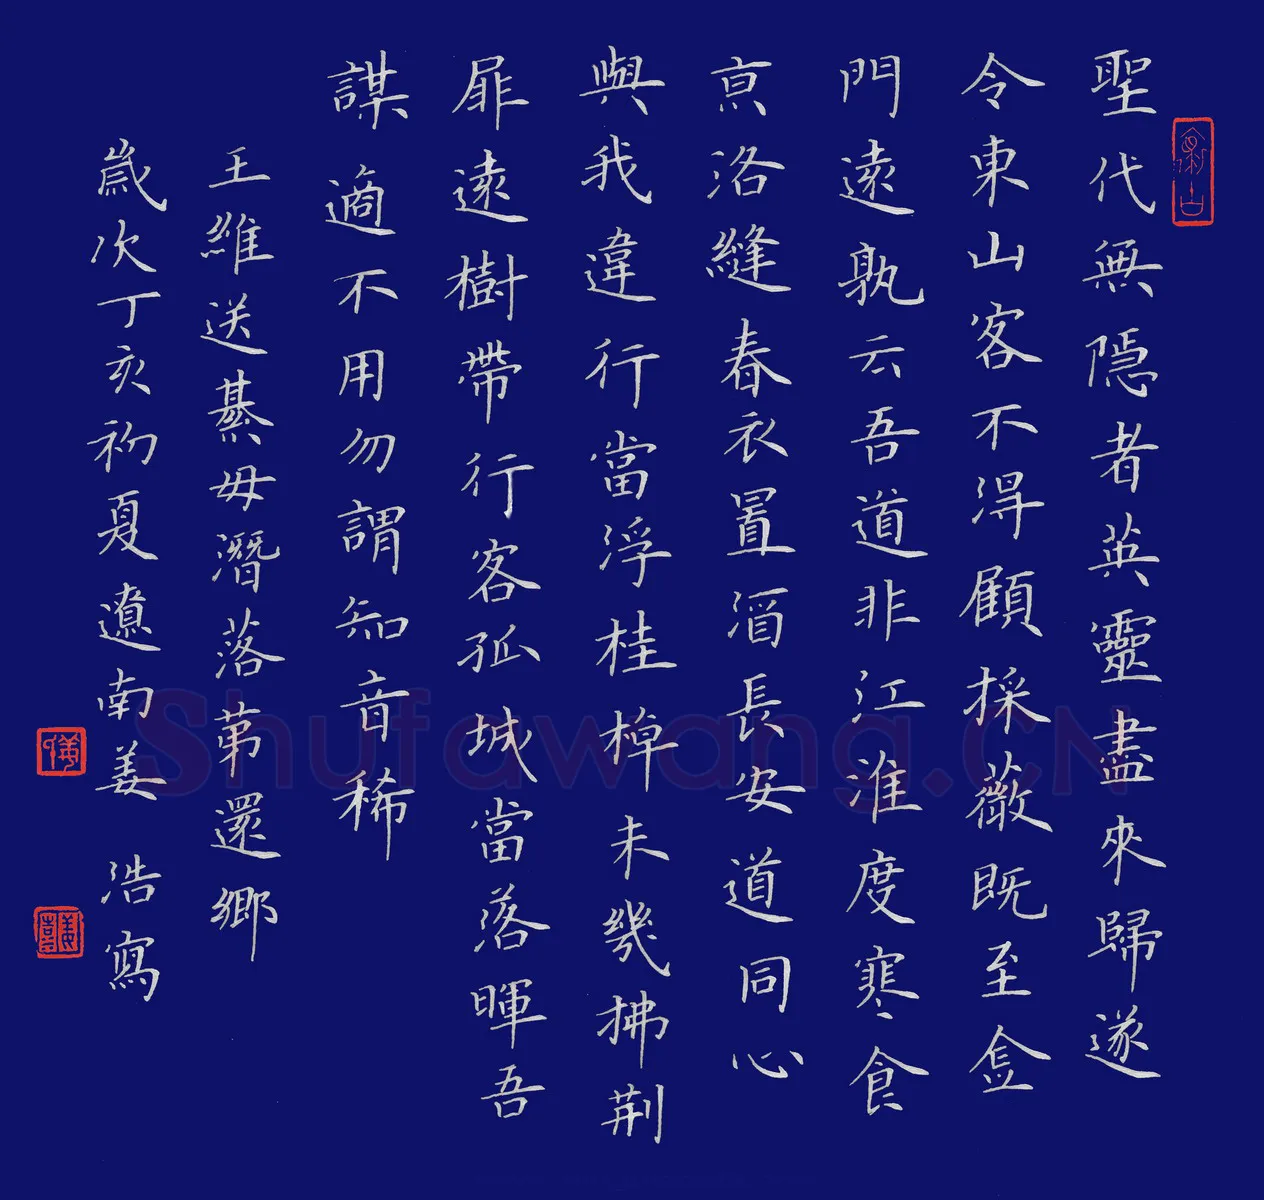 聖代無隱者英靈盡來歸遂
令東山客不得顧採薇既至金
門遠孰云吾道非江淮度寒食
京洛縫春衣置酒長安道同心
與我違行當浮桂棹未幾拂荆
扉遠樹帶行客孤城當落暉吾
謀適不用勿謂知音稀
王維送綦毋潛落第還鄉
歲次丁亥初夏遼南姜浩寫
Shufawang.CN